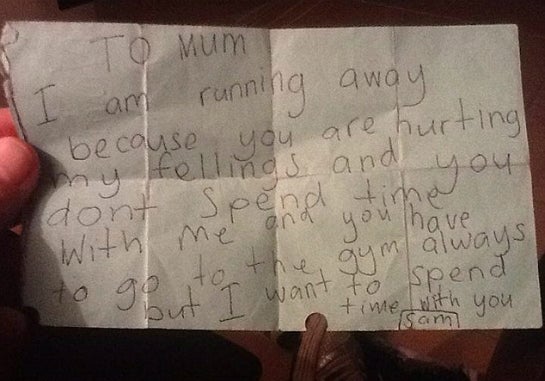 TO MUM
I am running away
because you are hurting
my fellings and you
dont spend time
With me and you have
to go to the gym always
but I want to spend
time with you
Sam